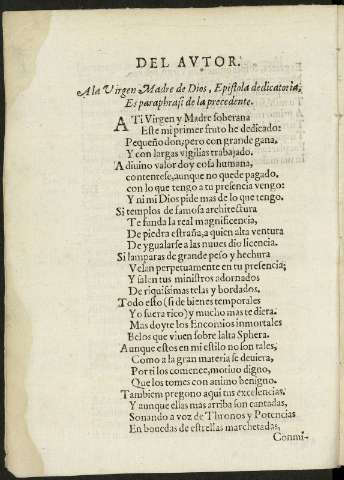 DEL AVTOR.
A la Virgen Madre de Dios, Epistola dedicatoria,
Es paraphrasi de la precedente.
A Ti Virgen y Madre soberana
Este mi primer fruto he dedicado:
Pequeño don, pero con grande gana,
Y con largas vigilias trabajado.
A diuino valor doy cosa humana,
contentese, aunque no quede pagado,
con lo que tengo a tu presencia vengo:
Y ni mi Dios pide mas de lo que tengo.
Si templos de famosa architectura
Te funda la real magnificencia,
De piedra estraña, a quien alta ventura
De ygualarse a las nuues dio licencia.
Si lamparas de grande peso y hechura
Velan perpetuamente en tu presencia;
Y salen tus ministros adornados
De riquissimas telas y bordados.
Todo esto (si de bienes temporales
Yo fuera rico) y mucho mas te diera.
Mas doyte los Encomios inmortales
Belos que viuen sobre la lta Sphera.
Aunque estos en mi estilo no son tales,
Como a la gran materia se deuiera,
Por ti los comence, motiuo digno,
Que los tomes con animo benigno.
Tambien pregono aqui tus excelencias,
Y aunque ellas mas arriba son cantadas,
Sonando a voz de Thronos y Potencias
En bouedas de estrellas marchetadas,
Conmi-